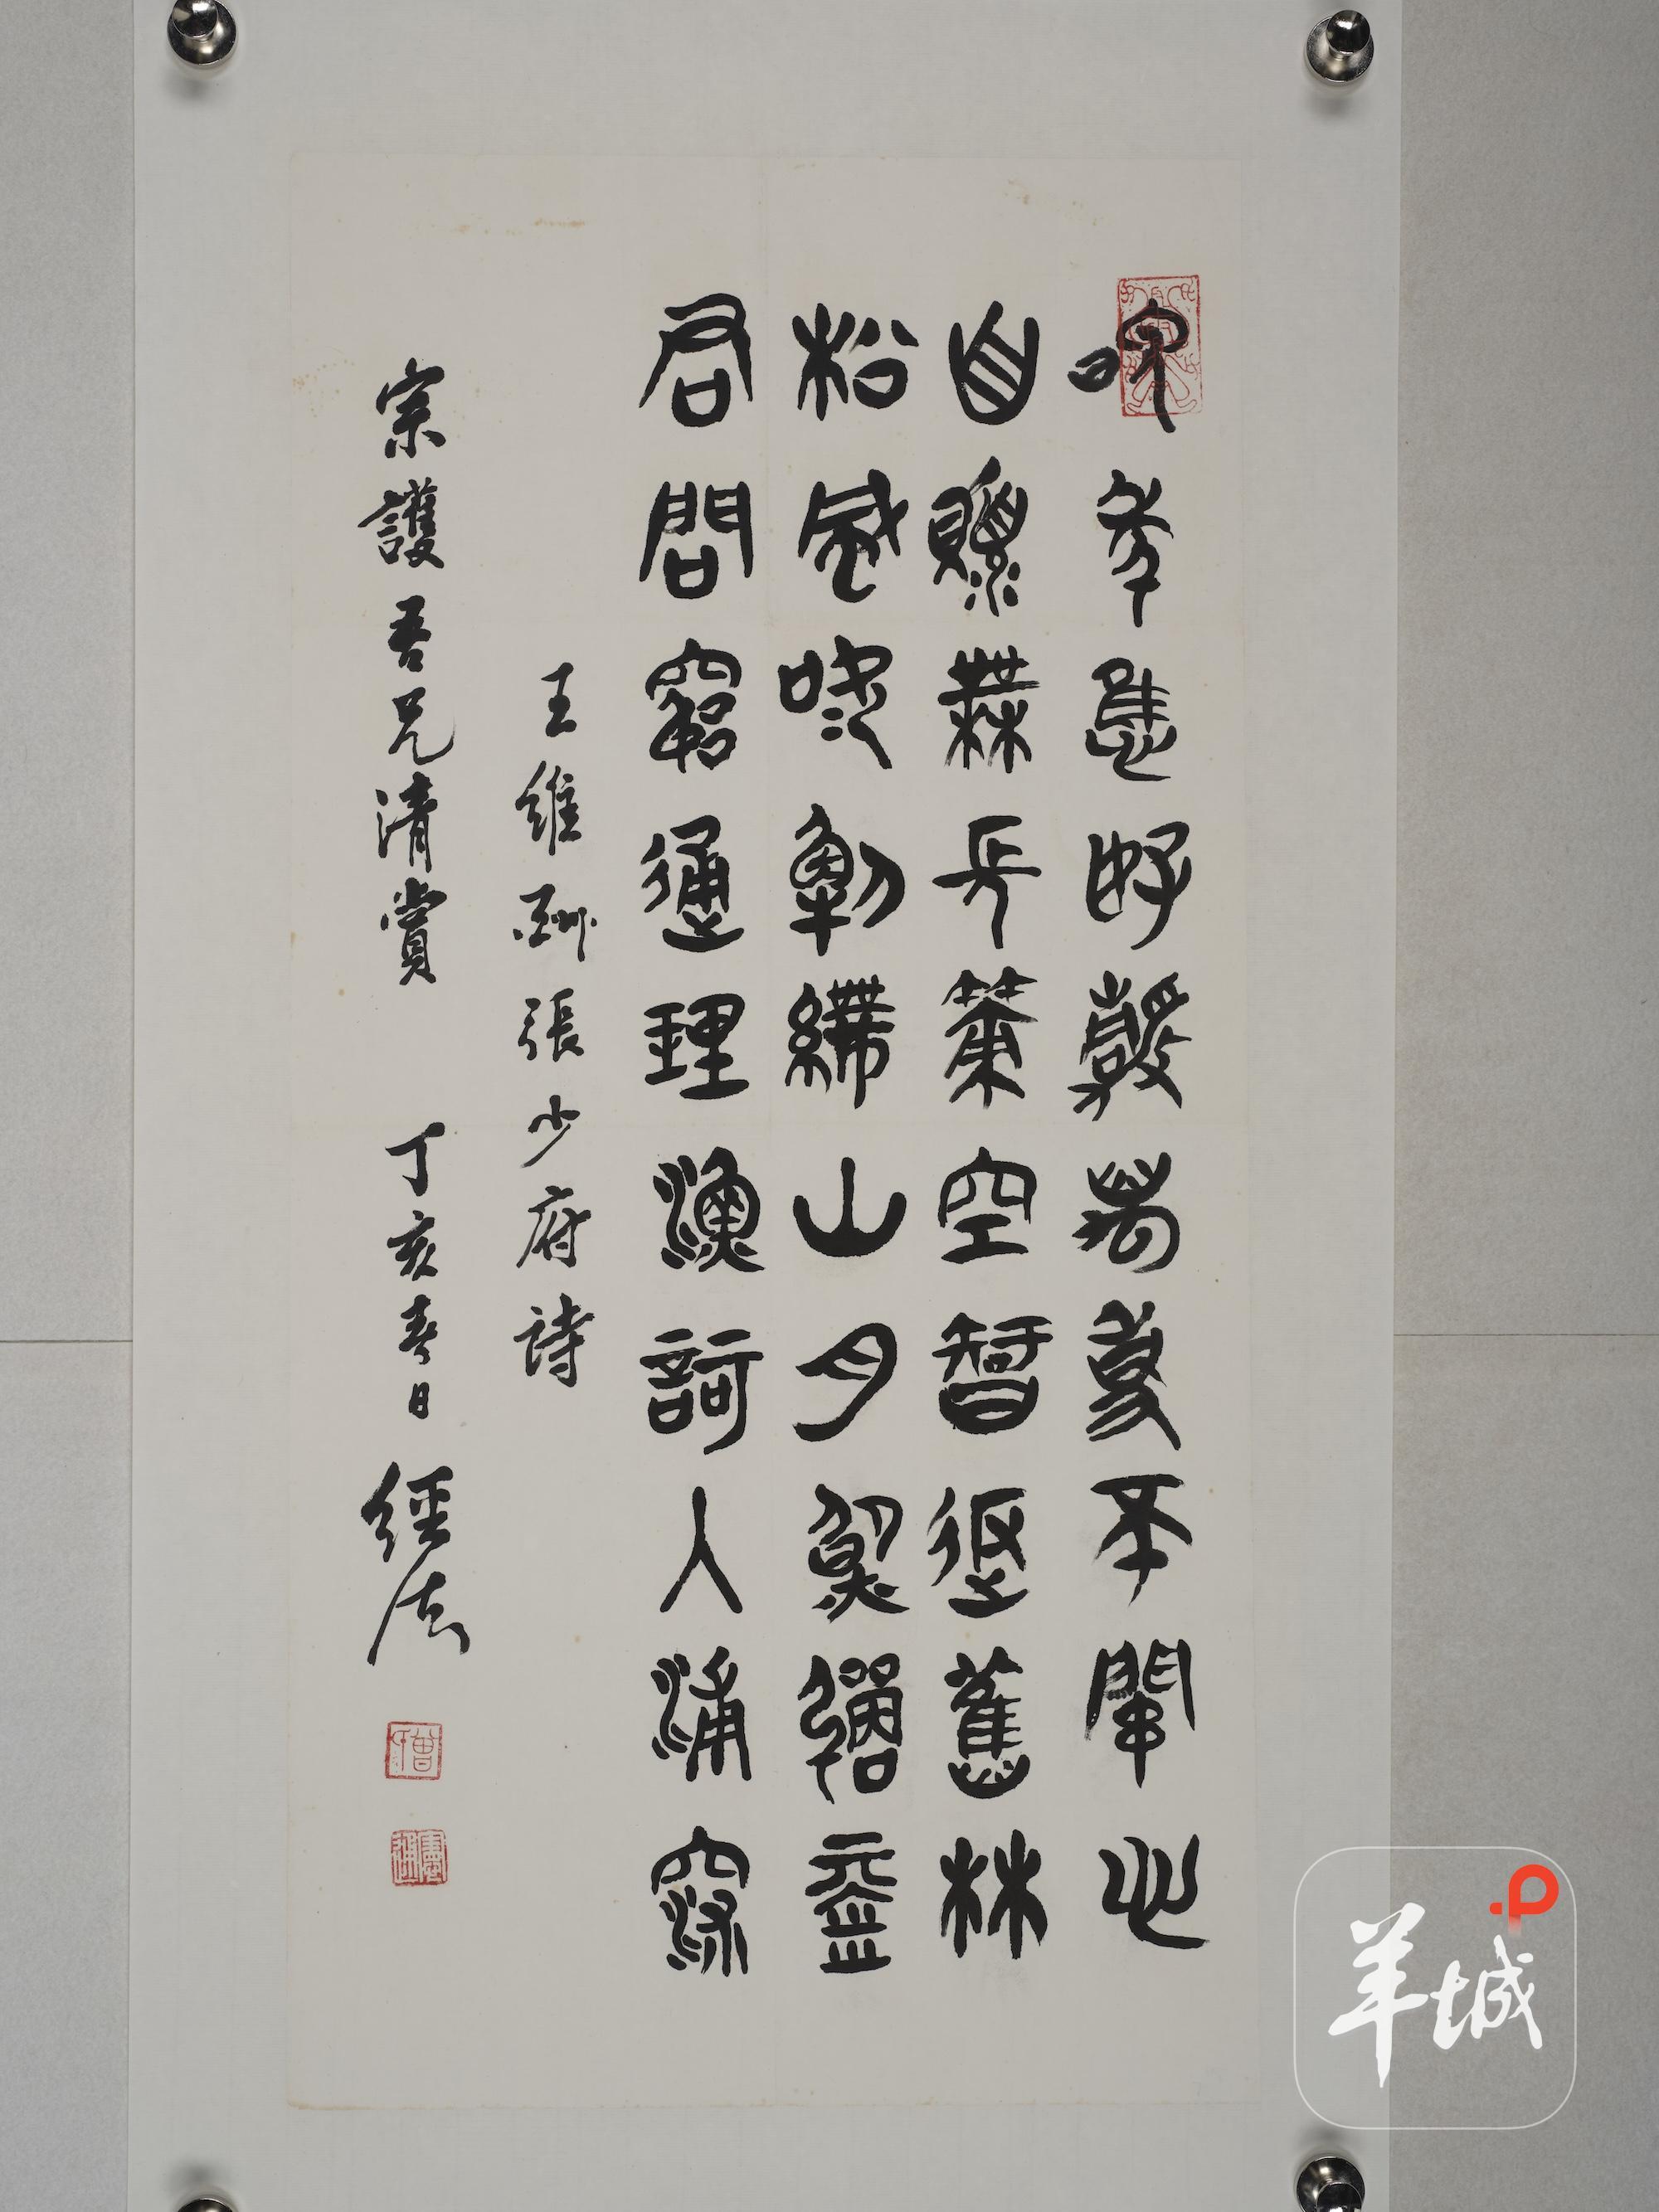 晚年惟好靜萬事不關心
自顧無長策空知返舊林
松風吹解帶山月照彈琴
君問窮通理漁歌入浦深
王維酬張少府詩
宗護吾兄清賞 丁亥春日 經法
憲通
羊城